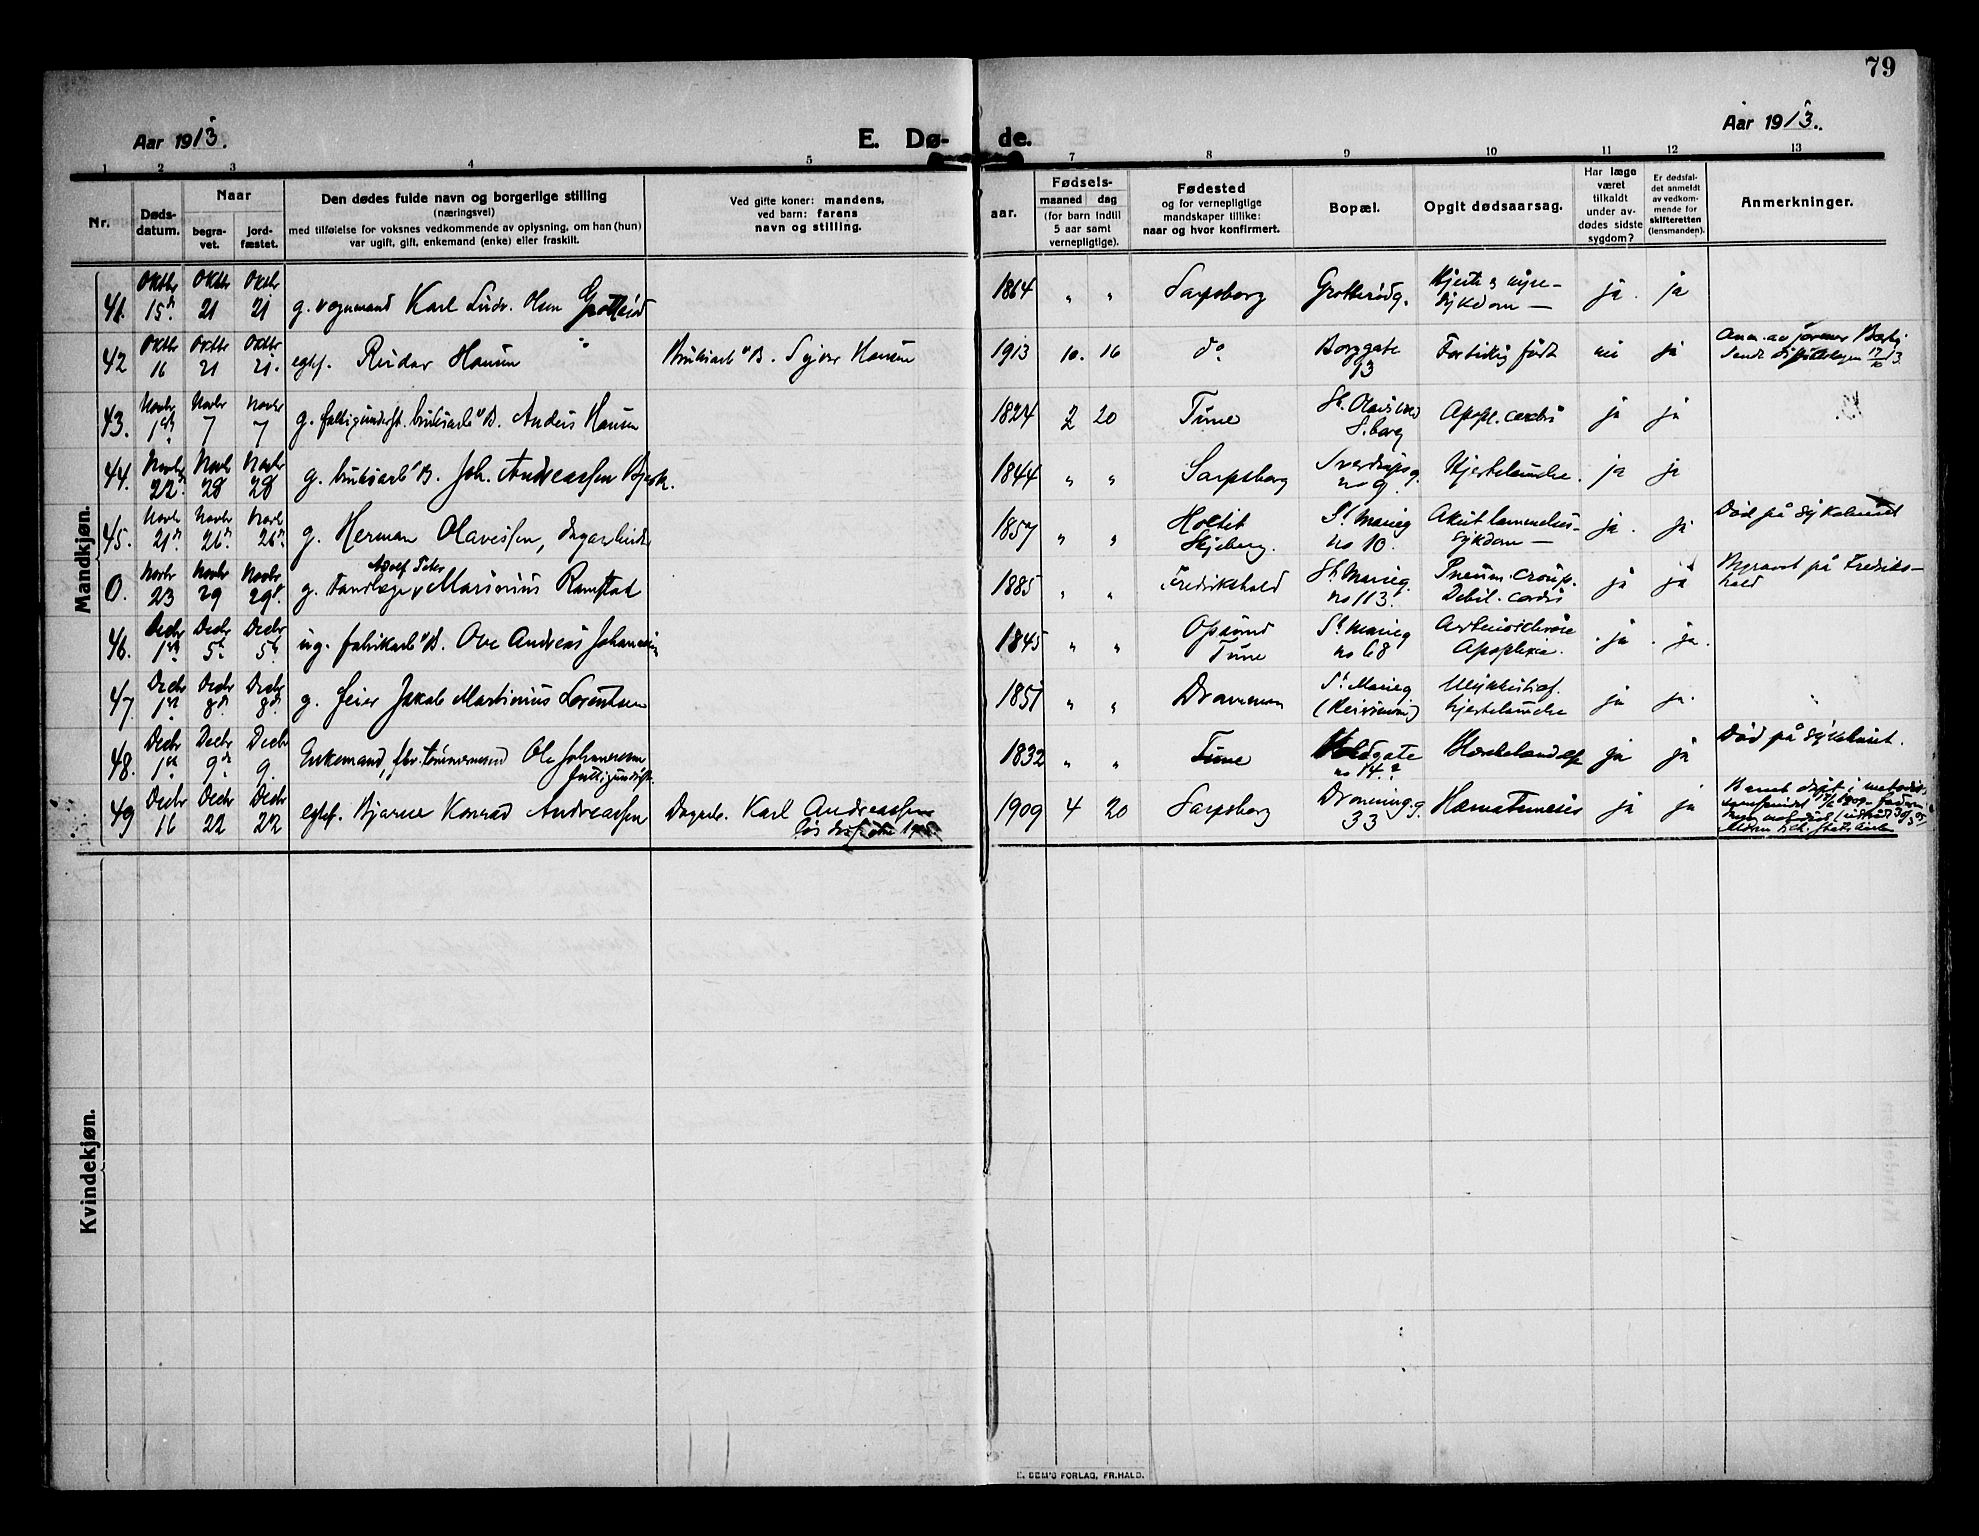 79
Aar 1913.
E. Dø-
de.
Aar 1913.
1 2 3 4 5 7 8 9 10 11 12 13
Nr.
Døds-
datum.
Naar
begra-
vet.
jord-
fæstet.
Den dødes fulde navn og borgerlige stilling
(næringsvei)
med tilføielse for voksnes vedkommende av oplysning, om han (hun)
var ugift, gift, enkemand (enke) eller fraskilt.
Ved gifte koner: mandens,
ved barn: farens
navn og stilling.
aar.
Fødsels-
maaned dag
(for barn indtil
5 aar samt
vernepligtige).
Fødested
og for vernepligtige
mandskaper tillike:
naar og hvor konfirmert.
Bopæl.
Opgit dødsaarsag.
Har læge
været
tilkaldt
under av-
dødes sidste
sygdom?
Er dødsfal-
det anmeldt
av vedkom-
mende for
skifteretten
(lensmanden).
Anmerkninger.
Mandkjøn.
41. Oktbr 15de Oktbr 21 Oktbr 21 g. vognmand Karl Ludv. Olsen Grotterød 1864 " " Sarpsborg Grotterødg. Hjerte & nyre-
sykdom — ja. ja
42 Oktbr 16 Oktbr 21 Oktbr 21. egtef. Reidar Hansen Bruksarb. B. Syver Hansen 1913 10. 16 do Borggate
93 Fortidlig født nei ja Anm. av jormor Berby
43. Novbr 1ste Novbr 7 Novbr 7 g. fattigunderst. bruksarb. B. Anders Hansen 1824 2 20 Tune St. Olavsvei
S.borg Apopl. cerebri ja ja
44. Novbr 22. Novbr 28 Novbr 28 g. bruksarb. B. Joh. Andreassen Bjerk. 1844 " " Sarpsborg Sverdrupsg.
no 9. Hjertelamelse. ja ja
45. Novbr 21de Novbr 26de Novbr 26de g. Herman Olavessen, dagarbeider 1857 " " Holtet
Skjeberg. St. Marieg
no 10. Akut lammelses-
sykdom — ja. ja Død på sykehuset
0. Novbr 23 Novbr 29 Novbr 29de g. Tandlæge Adolf Peter Marinius Ramstad 1885 " " Fredrikshald St. Marieg.
no 113. Pneum. croup.
Debil. cordis ja ja Begravet på Fredriks-
hald
46. Decbr 1ste Decbr 5te Decbr 5te ug. fabrikarb. B. Ove Andreas Johannesen 1845 " " Opsund
Tune St. Marieg
no 68 Arteriosklerose
Apoplexia. ja ja.
47. Decbr 1ste Decbr 8de Decbr 8de g. feier Jakob Martinius Lorentsen 1851 " " Drammen St. Marieg Ulykkestilf.
hjertelamelse ja ja.
48. Decbr 1ste Decbr 9de Decbr 9. Enkemand, fhv. tømmermand Ole Johannesen
fattigunderst. 1832 " " Tune gate
no 14? ja ja Død på sykehuset.
49 Decbr 16 Decbr 22 Decbr 22 egtef. Bjarne Konrad Andreassen Dagarb. Karl Andreassen 1909 4 20 Sarpsborg Dronning.g.
33 Hæmatemesis ja ja Barnet døpt i metodist-
Kvindekjøn.
E. SEM'S FORLAG, FR.HALD.